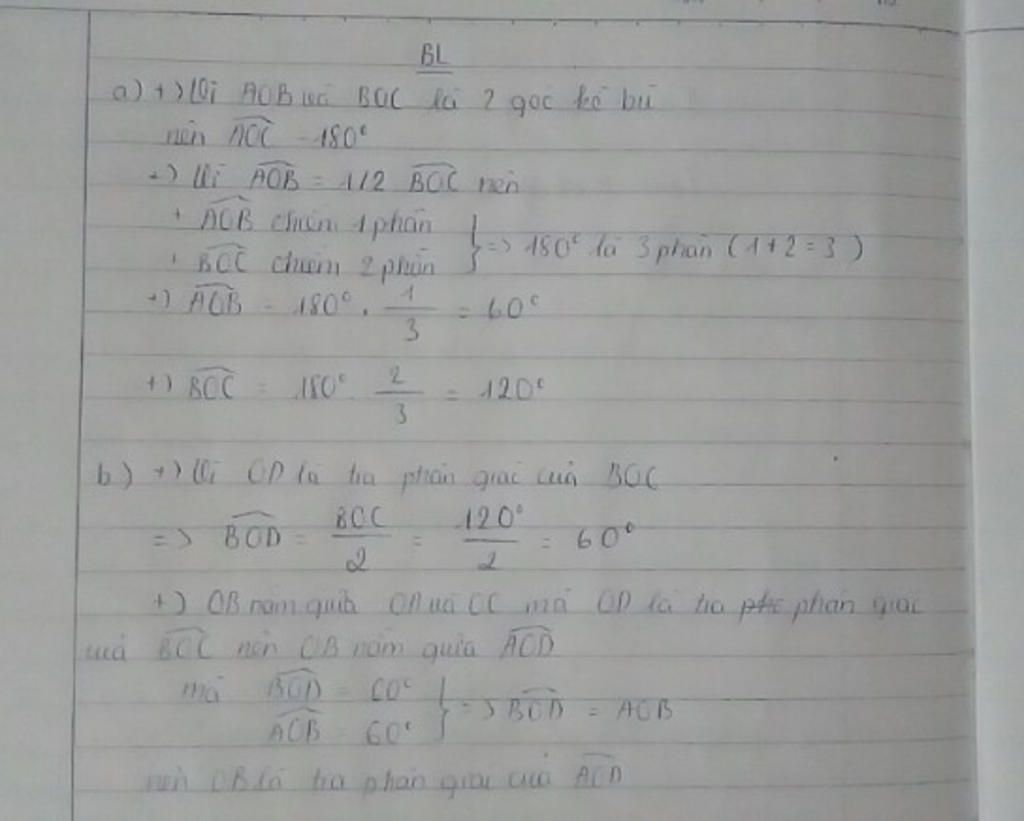 BL
a) +) Vì AOB và BOC là 2 góc kề bù
nên AOC = 180°
+) Vì AOB = 1/2 BOC nên
+ AOB chiếm 1 phần
+ BOC chiếm 2 phần } => 180° là 3 phần (1+2=3)
+) AOB = 180° . 1/3 = 60°
+) BOC = 180° . 2/3 = 120°
b) +) Vì OD là tia phân giác của BOC
=> BOD = BOC/2 = 120°/2 = 60°
+) OB nằm giữa OA và OC mà OD là tia phân giác
của BOC nên OB nằm giữa AOD
mà BOD = 60°
AOB = 60° } => BOD = AOB
nên OB là tia phân giác của AOD